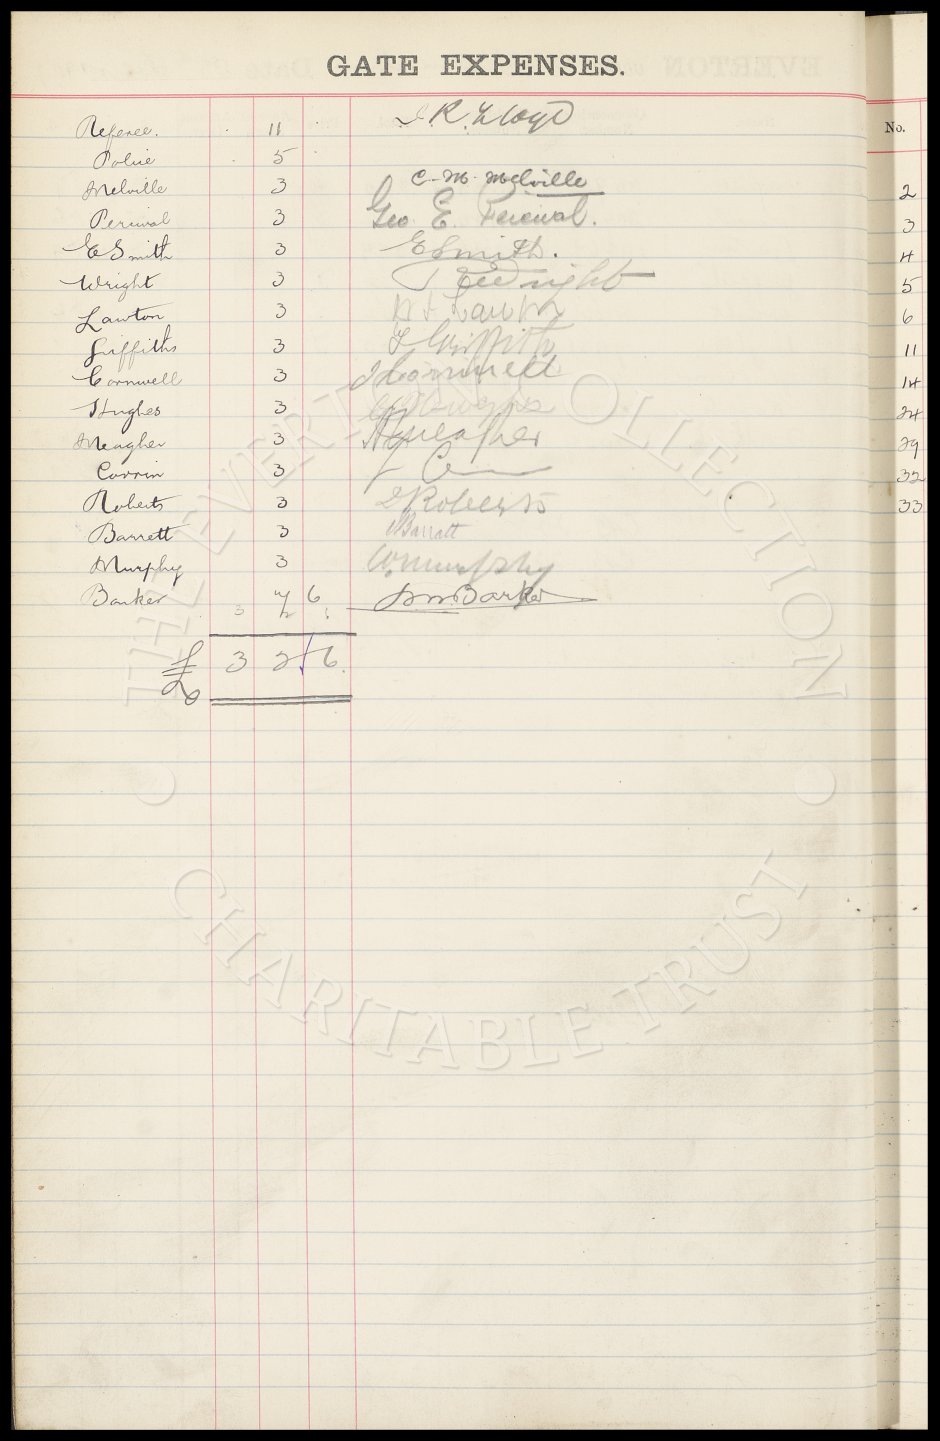 GATE EXPENSES.
Referee. 11 J. R. Lloyd
Police 5
Melville 3 C. M. Melville
Percival 3 Geo. E. Percival.
E Smith 3 E Smith.
Wright 3 Wright
Lawton 3 Lawton
Griffiths 3 Griffiths
Cornwell 3 J Cornwell
Hughes 3 Hughes
Meagher 3 Meagher
Corrin 3
Roberts 3 Roberts
Barrett 3 Barratt
Murphy 3 W Murphy
Barker 7 6 Barker
£ 3 2 6
No.
2
3
4
5
6
11
14
24
29
32
33
THE EVERTON COLLECTION
CHARITABLE TRUST